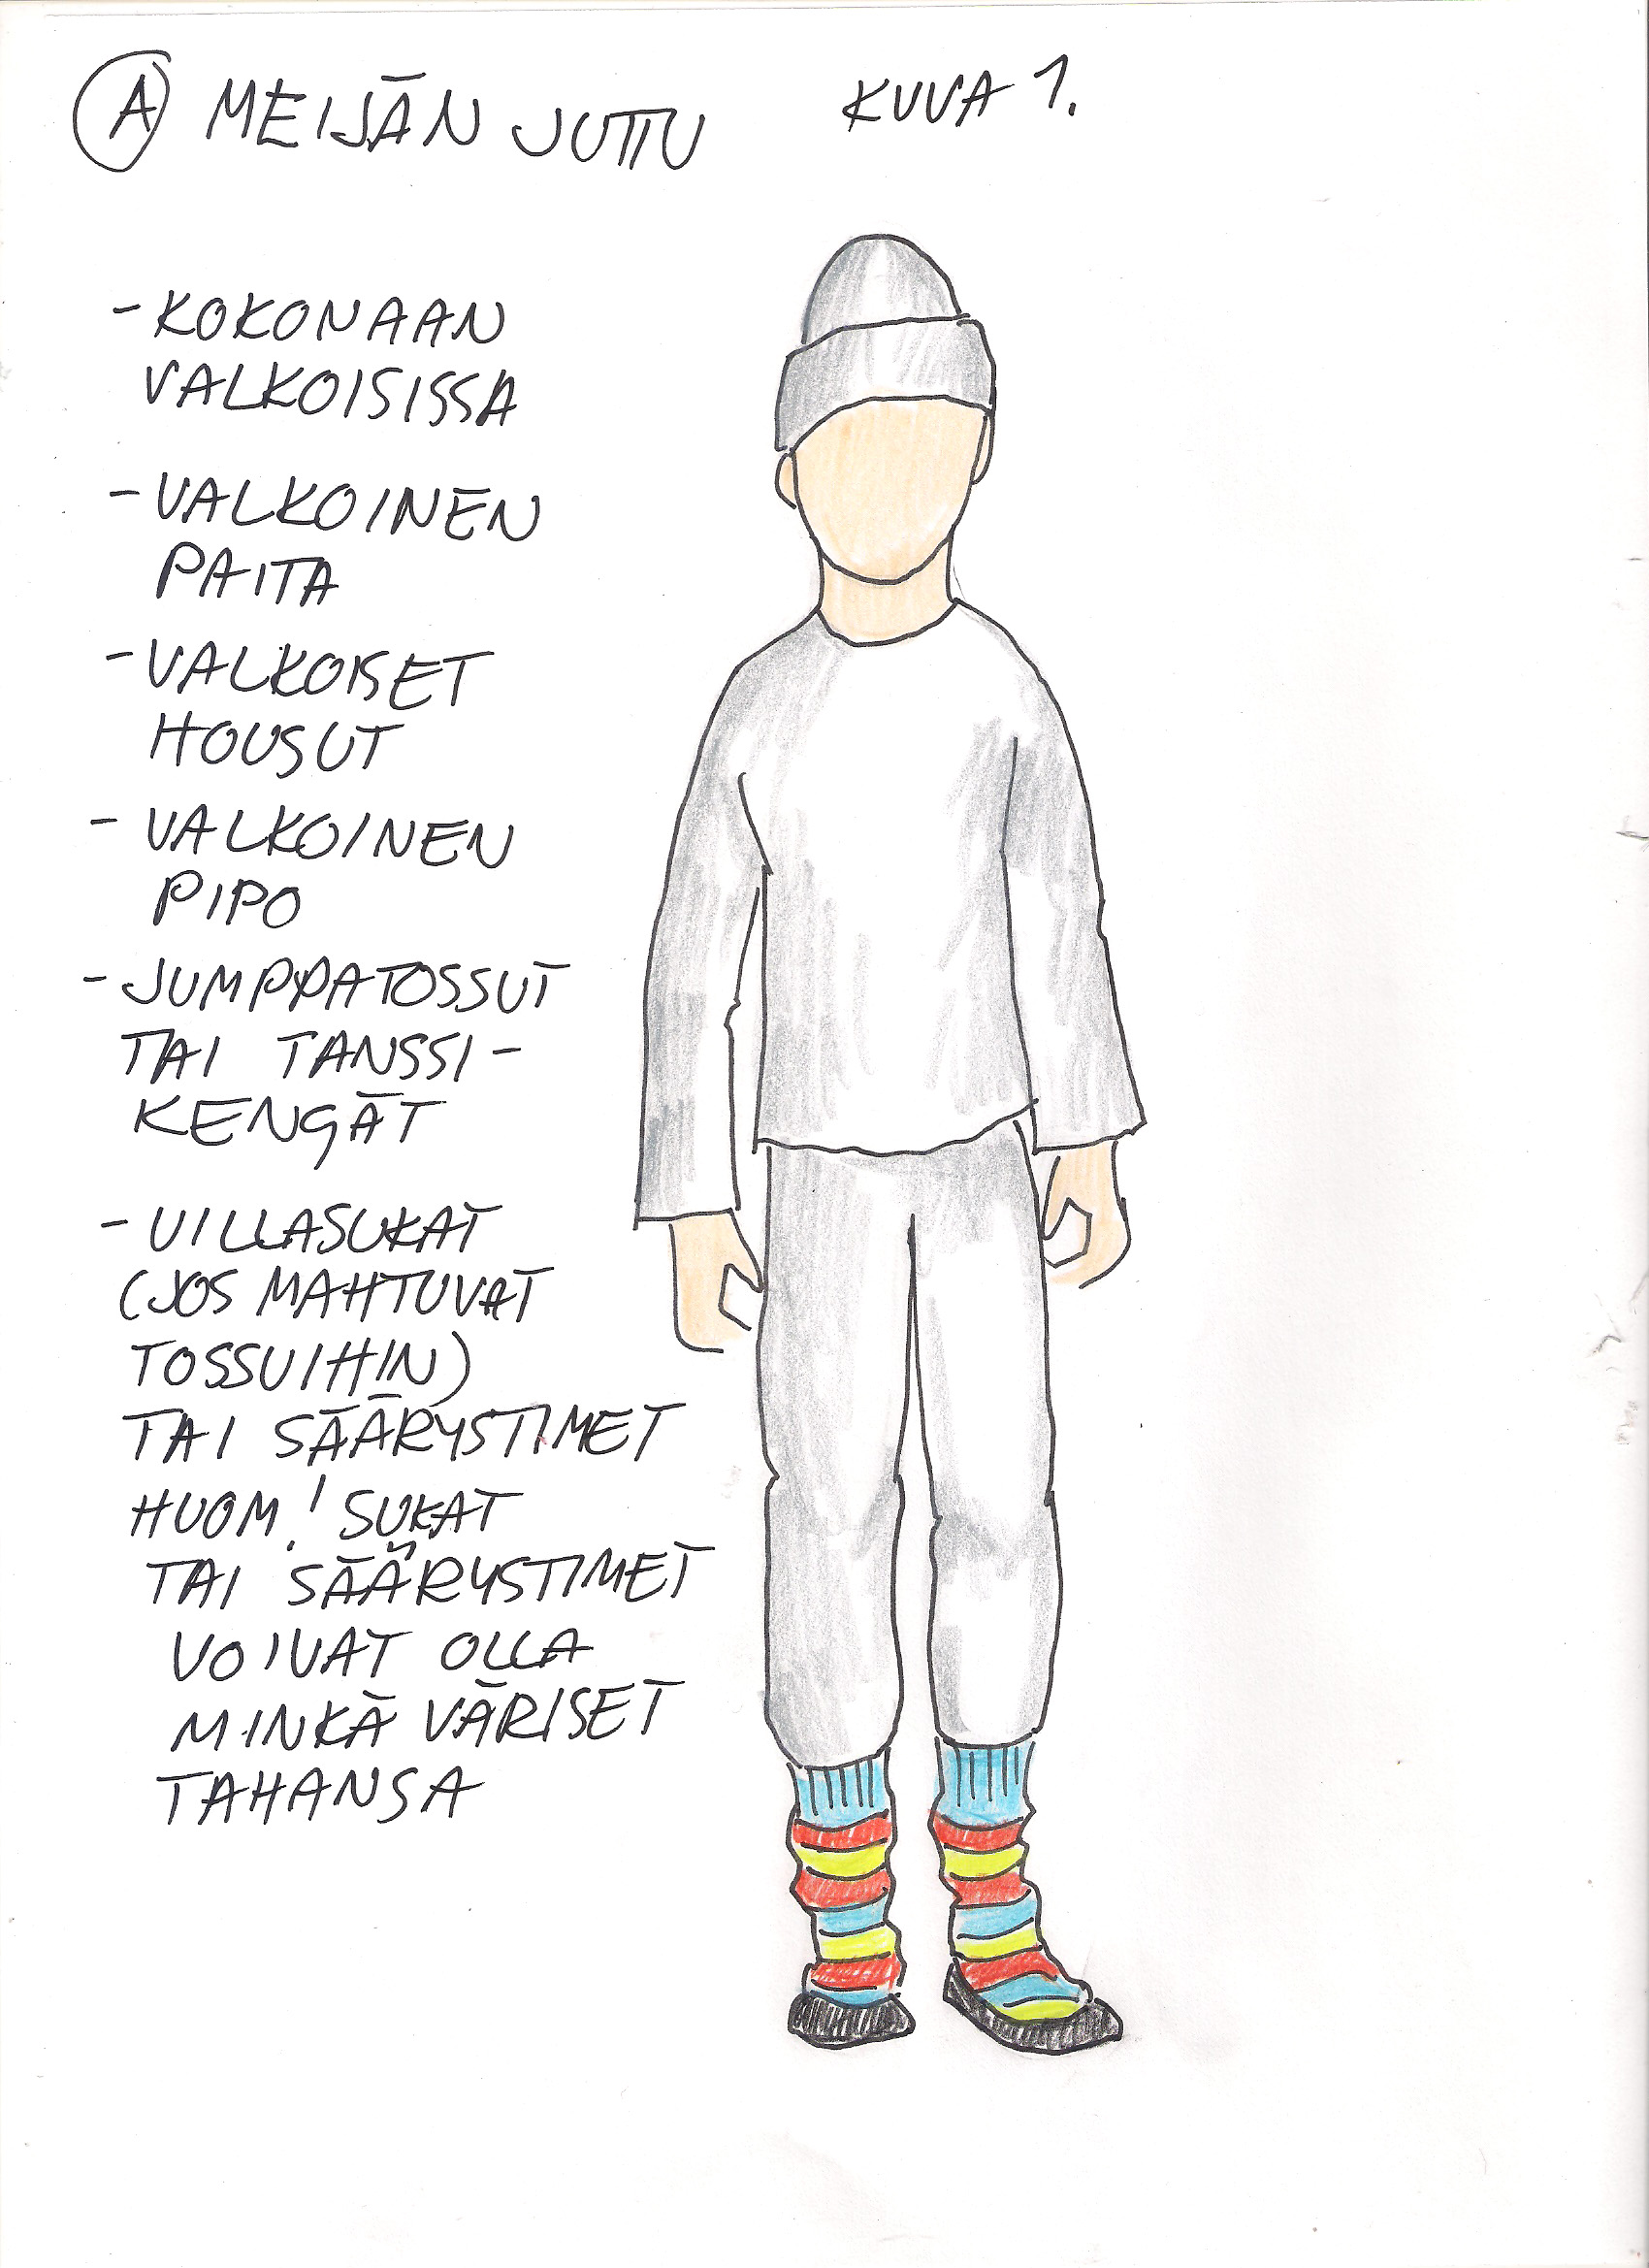 A MEIJÄN JUTTU KUVA 1.
- KOKONAAN
VALKOISISSA
- VALKOINEN
PAITA
- VALKOISET
HOUSUT
- VALKOINEN
PIPO
- JUMPPATOSSUT
TAI TANSSI-
KENGÄT
- VILLASUKAT
(JOS MAHTUVAT
TOSSUIHIN)
TAI SÄÄRYSTIMET
HUOM! SUKAT
TAI SÄÄRYSTIMET
VOIVAT OLLA
MINKÄ VÄRISET
TAHANSA